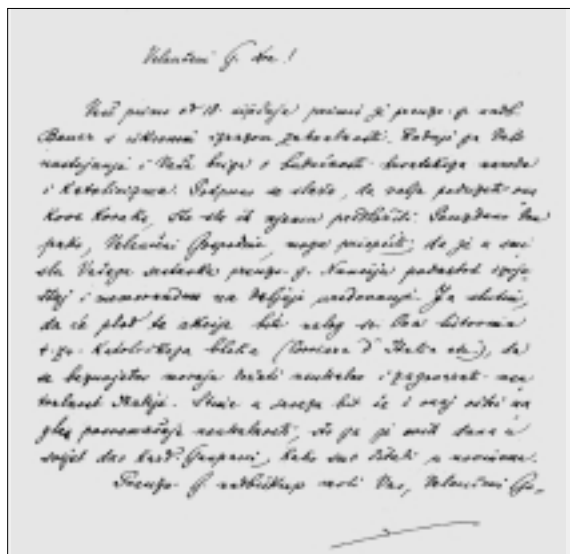 Velečasni G. dre!
Vaš pismo od 18. siječnja primio je preuzv. g. nadb.
Bauer s iskrenim izrazom zahvalnosti. Raduje ga Vaše
nastojanje i Vaša briga o budućnosti hrvatskoga naroda
i katolicizma. Potpuno se slaže, da valja poduzeti one
korake, što ste ih njemu predložili. Pouzdano Vam
pako, Velečasni Gospodine, mogu priopćiti, da je u smi
slu Vašega sastavka preuzv. g. Nuncije podastro izvje
štaj i memorandum na daljnje uredovanje. Ja slutim,
da će plod te akcije biti nalog sv. Oca listovima
t. zv. katoličkoga bloka (Corriere d'Italia etc.), da
se bezuvjetno moraju držati neutralno i zagovarati neu
tralnost Italije. U svezi bit će i onaj oštri na
glas neutralnosti, što ga je u
svijet dao kard. Gasparri, kako smo čitali u novinama.
Preuzv. G. nadbiskup moli Vas, Velečasni Go-